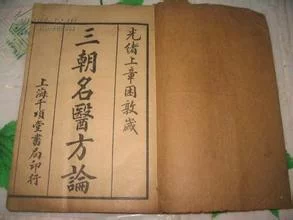 光緒上章困敦歲
三朝名醫方論
上海千頃堂書局印行